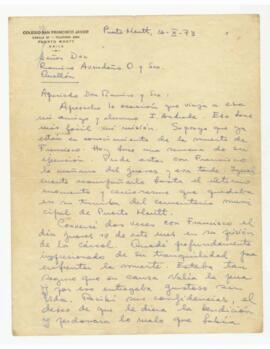 COLEGIO SAN FRANCISCO JAVIER
PUERTO MONTT
CHILE
Puerto Montt, 16-X-73
Señor Don
Ramiro Avendaño O. y Sra.
Quellón
Apreciado Don Ramiro y Sra:
Aprovecho la ocasión que viaja a esa
mi amigo y alumno I. Andrade. Ello hace
más fácil mi misión. Supongo que ya
están en conocimiento de la muerte de
Francisco. Hoy hace una semana de su
ejecución. Pude estar con Francisco
la mañana del jueves y esa tarde. Igual
mente acompañarle hasta el último
momento y cerciorarme que quedaba
en su tumba del cementerio muni
cipal de Puerto Montt.
Conversé dos veces con Francisco el
día jueves 18 de este mes en su prisión
de la cárcel. Quedé profundamente
impresionado de su tranquilidad para
enfrentar la muerte. Estaba tan
seguro que su causa valía la pena
y por eso entregaba gustoso su
vida. Recibí sus confidencias, el
deseo de que le diera la bendición
y perdonara lo malo que había